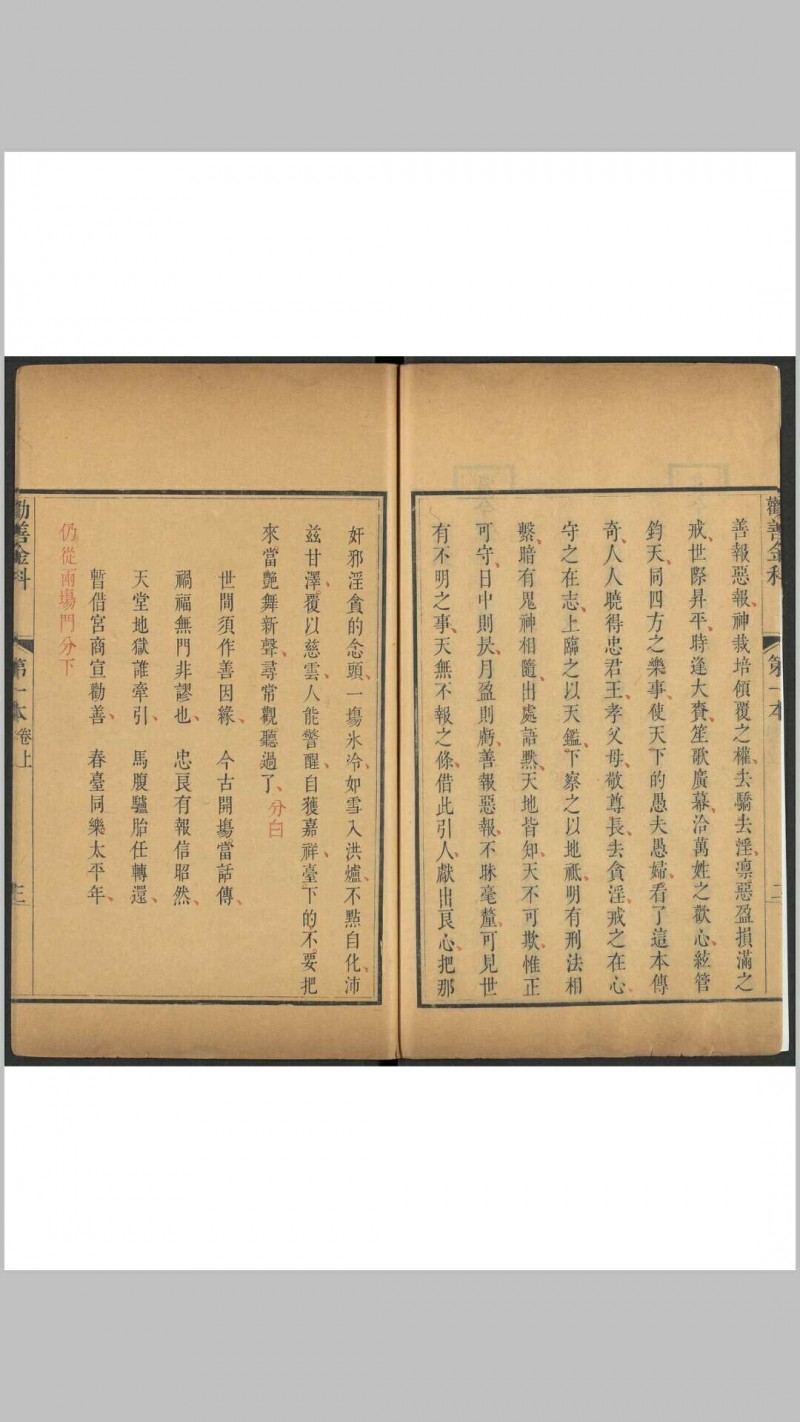 勸善金科 第一本 二
善報惡報、神栽培傾覆之權、去驕去淫、凛惡盈損滿之
戒、世際昇平、時逢大賚、笙歌廣幕、洽萬姓之歡心、絃管
鈞天、同四方之樂事、使天下的愚夫愚婦、看了這本傳
奇、人人曉得忠君王、孝父母、敬尊長、去貪淫、戒之在心、
守之在志、上臨之以天鑑、下察之以地祇、明有刑法相
繫、暗有鬼神相隨、出處語黙、天地皆知、天不可欺、惟正
可守、日中則昃、月盈則虧、善報惡報、不昧毫釐、可見世
有不明之事、天無不報之條、借此引人、獻出良心、把那
奸邪淫貪的念頭、一塲氷冷、如雪入洪爐、不點自化、沛
兹甘澤、覆以慈雲、人能警醒、自獲嘉祥、臺下的不要把
來當艶舞新聲、尋常觀聽過了、分白
世間須作善因緣、 今古開塲當話傳、
禍福無門非謬也、 忠良有報信昭然、
天堂地獄誰牽引、 馬腹驢胎任轉還、
暫借宮商宣勸善、 春臺同樂太平年、
仍從兩塲門分下
勸善金科 第一本卷上 三